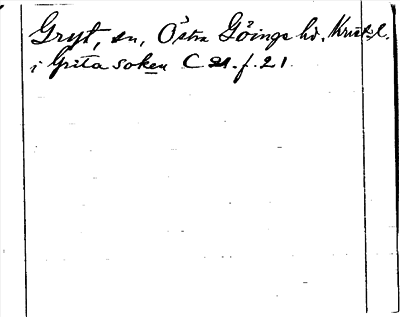 Gryt, sn, Östra Göinge hd. Krist. l.
i Grita soken C. 21. f. 21.